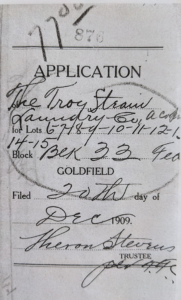 7700
876
APPLICATION
The Troy Steam
Laundry Co, a Corp
for Lots 6-7-8-9-10-11-12-13
14-15
Block Blk 33
GOLDFIELD
Filed 20th day of
Dec 1909.
Theron Stevens
TRUSTEE